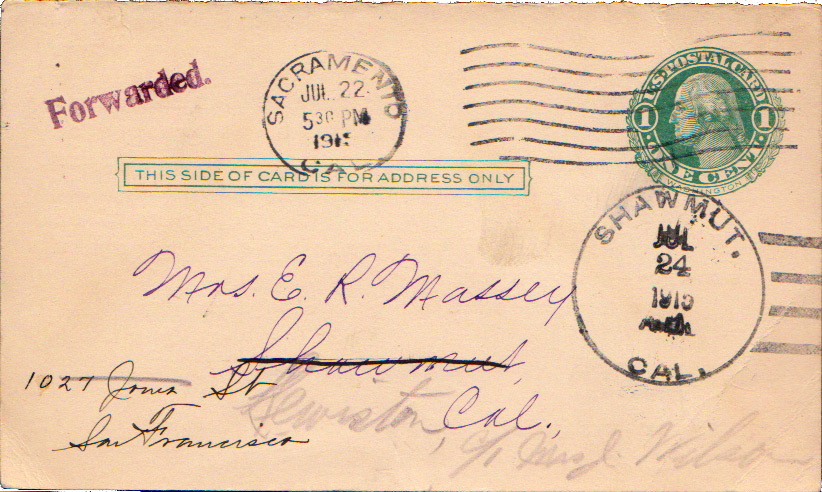 Forwarded.
SACRAMENTO
JUL 22
5 30 PM
191
CAL.
U.S. POSTAL CARD
1 1
ONE CENT
WASHINGTON
THIS SIDE OF CARD IS FOR ADDRESS ONLY
SHAWMUT.
JUL
24
1915
CAL.
Mrs. E. R. Massey
Shawmut,
1027 Jones St
Lewiston, Cal.,
San Francisco
c/o Mrs J. Wilson